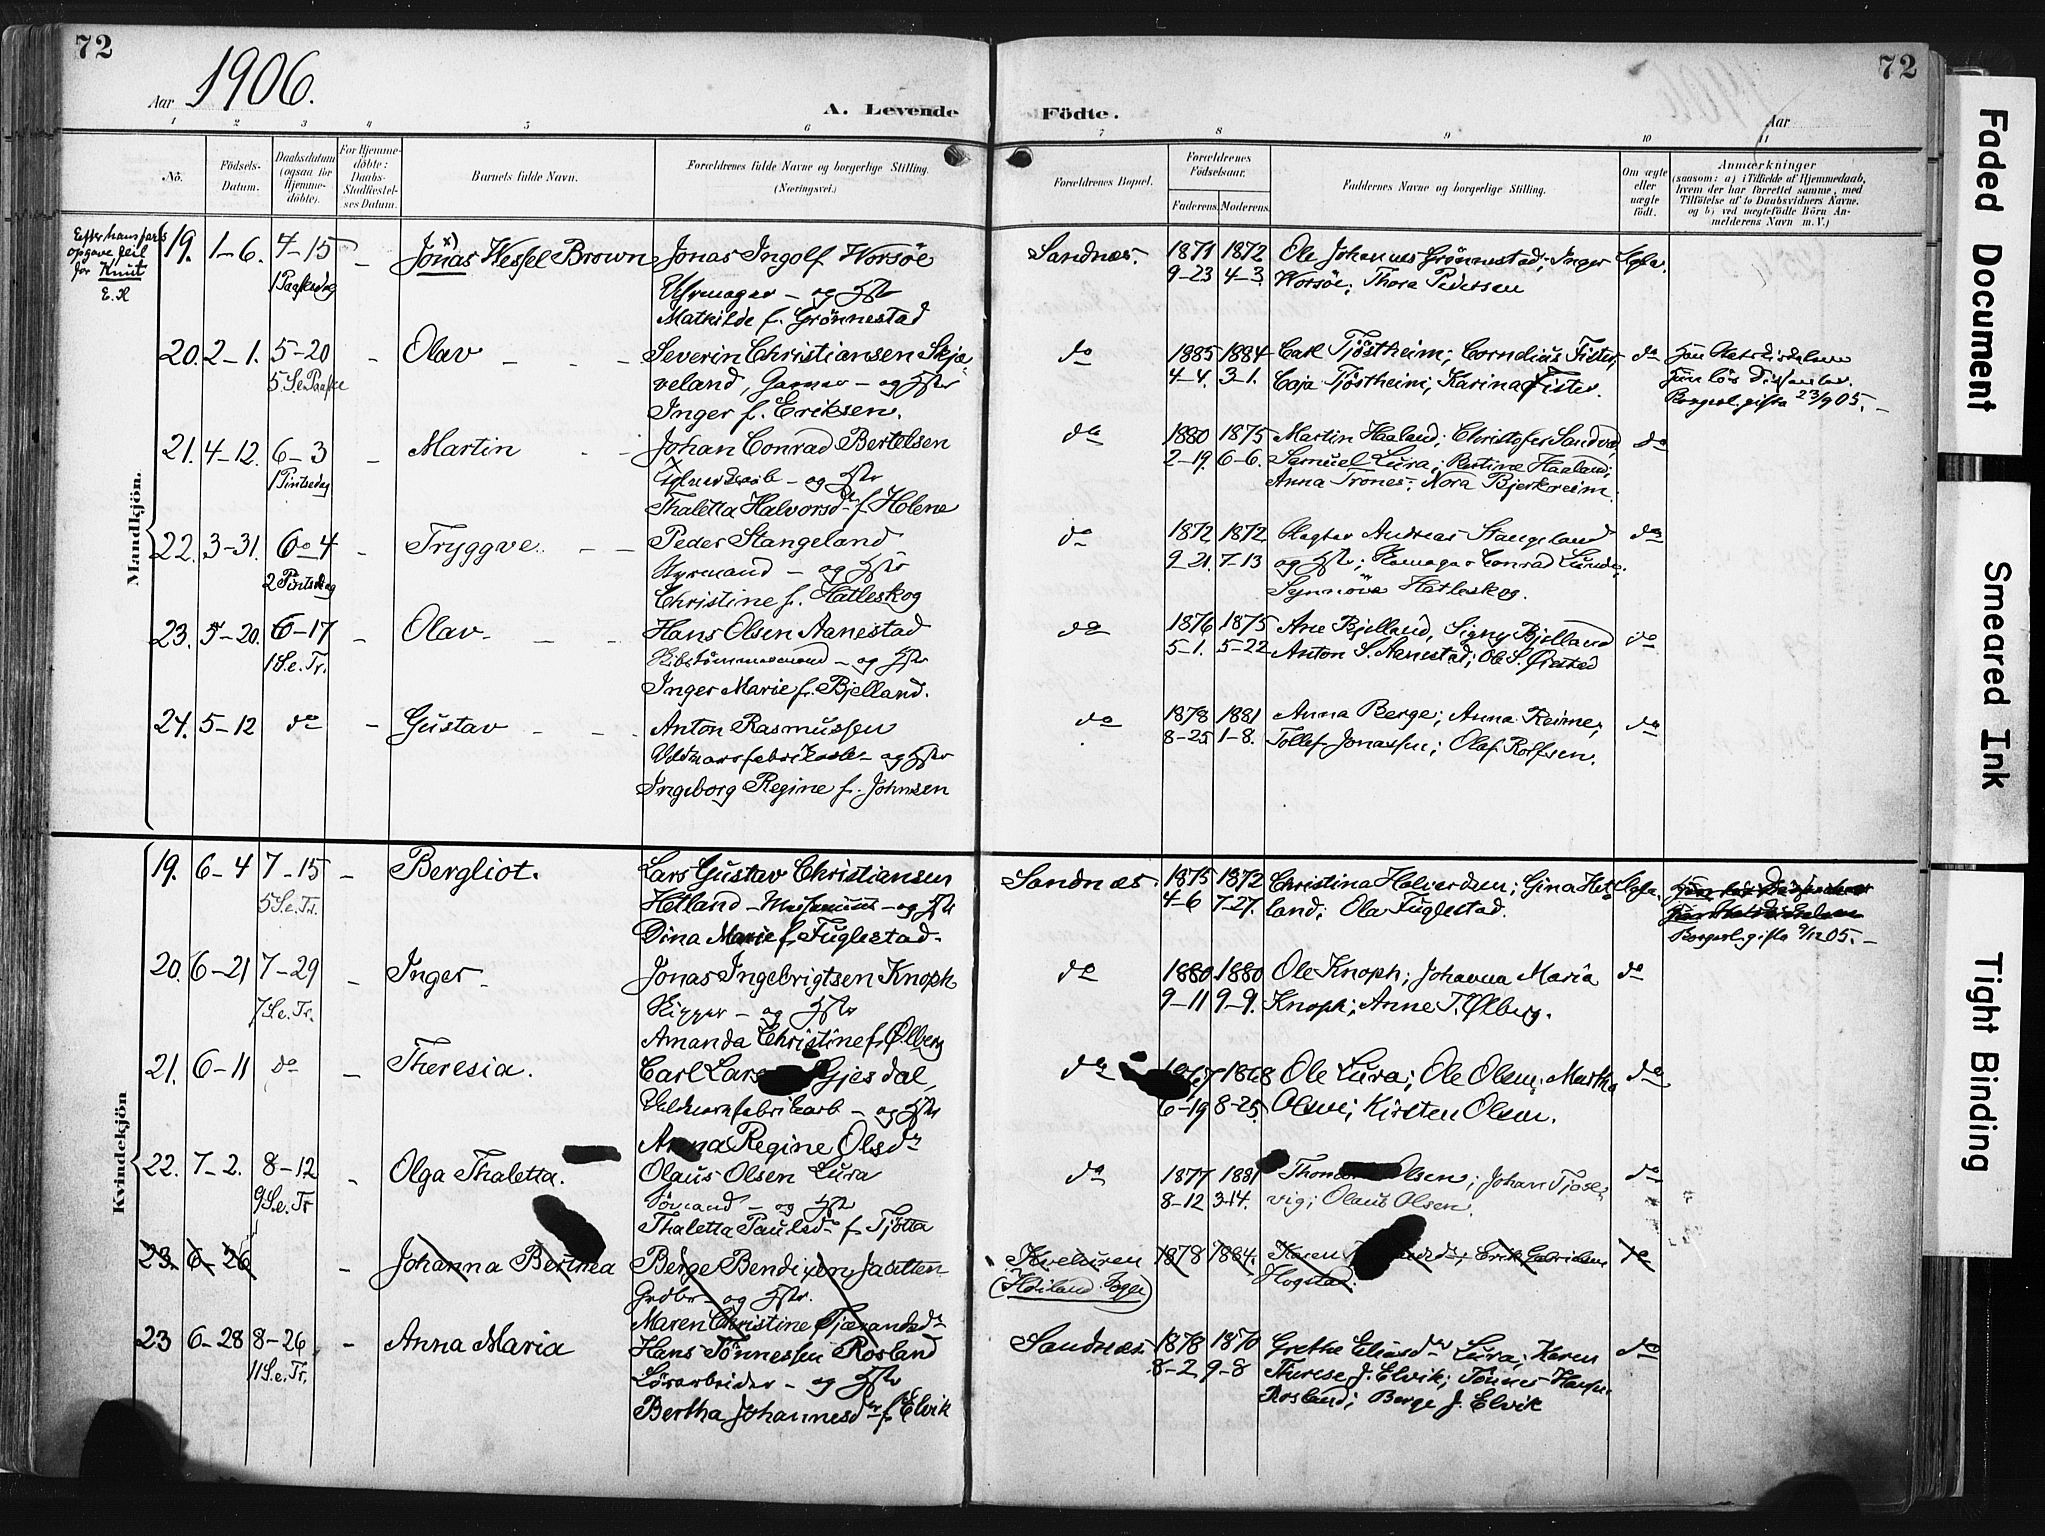 72
72
Aar 1906.
A. Levende
Födte.
Aar
1 2 3 4 5 6 7 8 9 10 11
No.
Födsels-Datum.
Daabsdatum (ogsaa for Hjemme-döbte).
For Hjemme-döbte: Daabs-Stadfæstel-ses Datum.
Barnets fulde Navn.
Forældrenes fulde Navne og borgerlige Stilling.
(Næringsvei.)
Forældrenes Bopæl.
Forældrenes Födselsaar.
Faderens. Moderens.
Faddernes Navne og borgerlige Stilling.
Om ægte eller uægte födt.
Anmærkninger
(saasom: a) i Tilfælde af Hjemmedaab, hvem der har forrettet samme, med Tilföielse af to Daabsvidners Navne, og b) ved uægtefödte Börn An-melderens Navn m. V.)
Efter hans fars
opgave, feil
for Knut
E. H
Mandkjön.
19. 1-6. 4-15 - Jonas Hessel Brown Jonas Ingolf Worsöe Sandnes 1871 1872 Ole Johannes Grönnestad; Inger
1 Paaskedag Urmager - og Hstr 9-23 4-3 Worsöe; Thora Pedersen
Mathilde f. Grönnestad
20. 2-1. 5-20 - Olav Severin Christiansen Skjæ- do 1885 1884 Carl Tjöstheim; Cornelius Fister, do
5. S. e. Paaske veland, Garver - og Hstr 4-4. 3-1. Caja Tjöstheim; Karina Fister.
Inger f. Eriksen. Borgerl. gifte 23/9 05.
21. 4-12. 6-3 - Martin Johan Conrad Bertelsen do 1880 1875 Martin Haaland; Christofer do
1 Pintsedag og Hstr 2-19. 6-6. Samuel Lura; Haaland;
Thaletta Halvorsdr f. Holene Anna Trones; Nora Bjerkreim.
22. 3-31. 6-4 - Tryggve. Peder Stangeland do 1872 1872 Andreas Stangeland do
2 Pintsedag Styrmand - og Hstr 9-21. 7-13 og Hstr; Conrad Lunde,
Christine f. Hatleskog Synnöve Hatleskog.
23. 5-20. 6-17 - Olav Hans Olsen Aanestad do 1876 1875 Ane Bjelland, Signy Bjelland do
1 S. e. Tr. Skibstömmermand - og Hstr 5-1. 5-22 Anton S. Aanestad; Ole S.
Inger Marie f. Bjelland.
24. 5-12 do - Gustav Anton Rasmussen do 1878 1881 Anna Berge; Anna Reime; do
Uldvarefabrikarb - og Hstr 8-25 1-8. Tollef Jonassen; Olaf Rolfsen.
Ingeborg Regine f. Johnsen
Kvindekjön
19. 6-4 7-15 - Bergliot. Lars Gustav Christiansen Sandnes 1875 1872 Christina Halvorsen; Gina Het-
5 S. e. Tr. Hetland - og Hstr 4-6 7-27. land; Ola Fuglestad.
Dina Marie f. Fuglestad. Borgerl. gifte 9/12 05.
20. 6-21 7-29 - Inger Jonas Ingebrigtsen Knoph do 1880 1880 Ole Knoph; Johanna Maria do
7 S. e. Tr. Skipper - og Hstr 9-11 9-9. Knoph; Anne T. Ølberg.
Amanda Christine f. Ølberg
21. 6-11 do - Theresia. Carl Lars Gjesdal, do 1868 Ole Lura; Ole Olsen; Martha do
Uldvarefabrikarb - og Hstr 6-19 8-25. Olsen; Kirsten Olsen.
Anna Regine Olsdr
22. 7-2. 8-12 - Olga Thaletta. Olaus Olsen Lura do 1877 1881 Olsen; Johan Tjose- do
9 S. e. Tr Sömand - og Hstr 8-12 3-14. vig; Olaus Olsen.
Thaletta Paulsdr f. Tjötta
23. 6-26 - Johanna Berthea Berge Bendixen Jaatten Kveluren 1878 1884. Karen Erik Gabrielsen do
Grdbr - og Hstr. (Höiland Sogn) Hogstad.
Maren Christine Tjerandsdr
23 6-28 8-26 - Anna Maria Hans Tönnessen Rosland Sandnes 1878 1870 Grethe Eliasdr Lura; Karen do
11 S. e. Tr. og Hstr 8-2 9-8 Therese J. Elvik; Tönnes Hansen
Bertha Johannesdr f. Elvik Rosland; Berge J. Elvik
Faded Document
Smeared Ink
Tight Binding